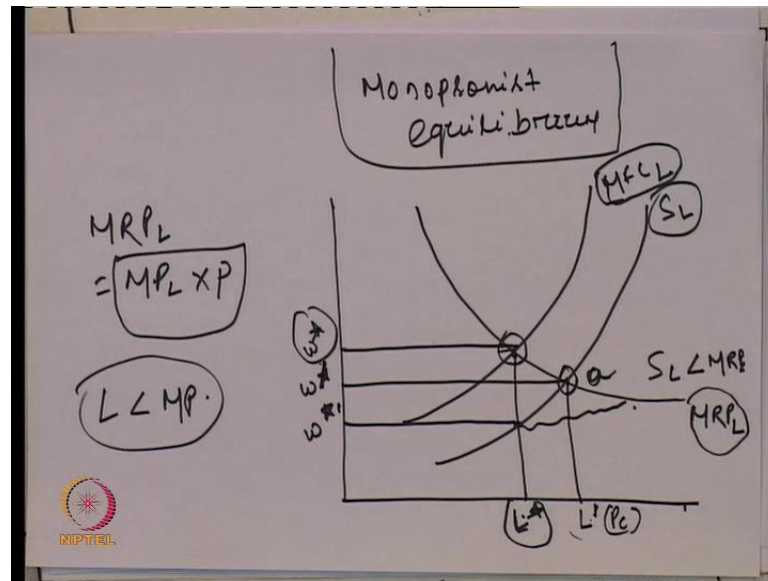 Monopsonist
equilibrium
MFCL
SL
MRPL
= MPL X P
L < MP.
w*
w*
w*'
a
SL < MRPL
MRPL
L*
L' (PC)
NPTEL